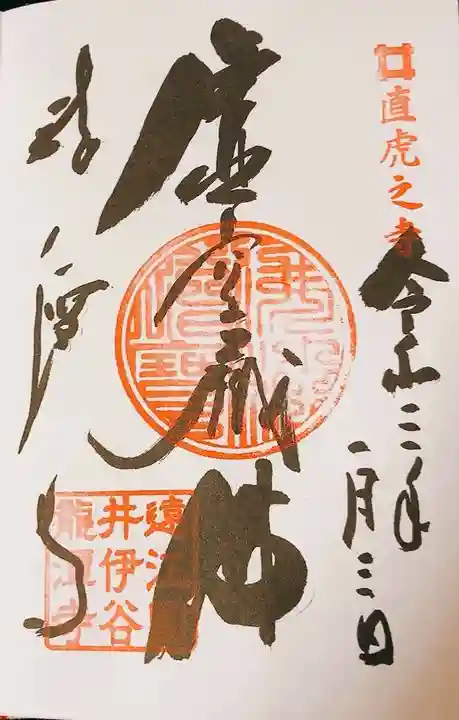 直虎之寺
令和三年
一月三日
虚空蔵佛
龍潭寺
遠江
井伊谷
龍潭寺